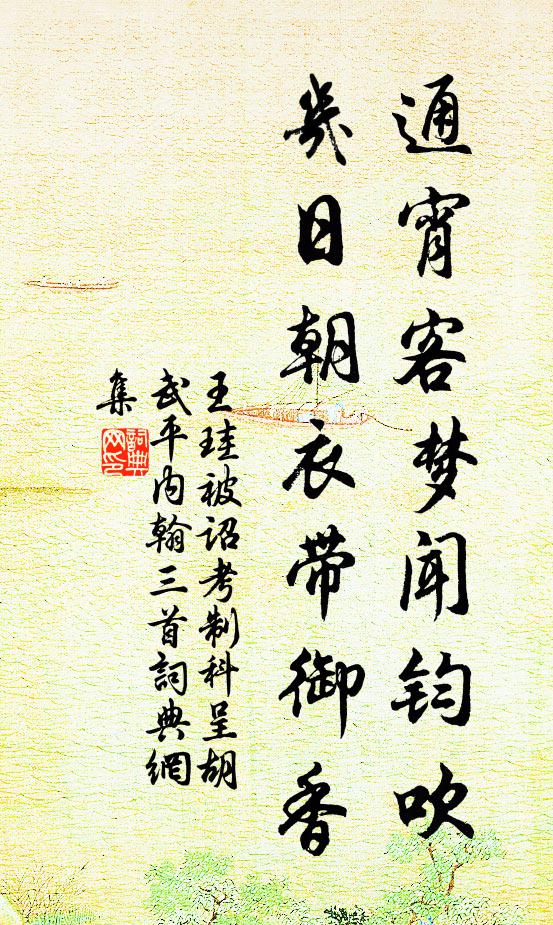 通宵客梦闻钧吹
幾日朝衣带御香
王珪被诏考制科呈胡
武平内翰三首詞典網
集
詞典
网印